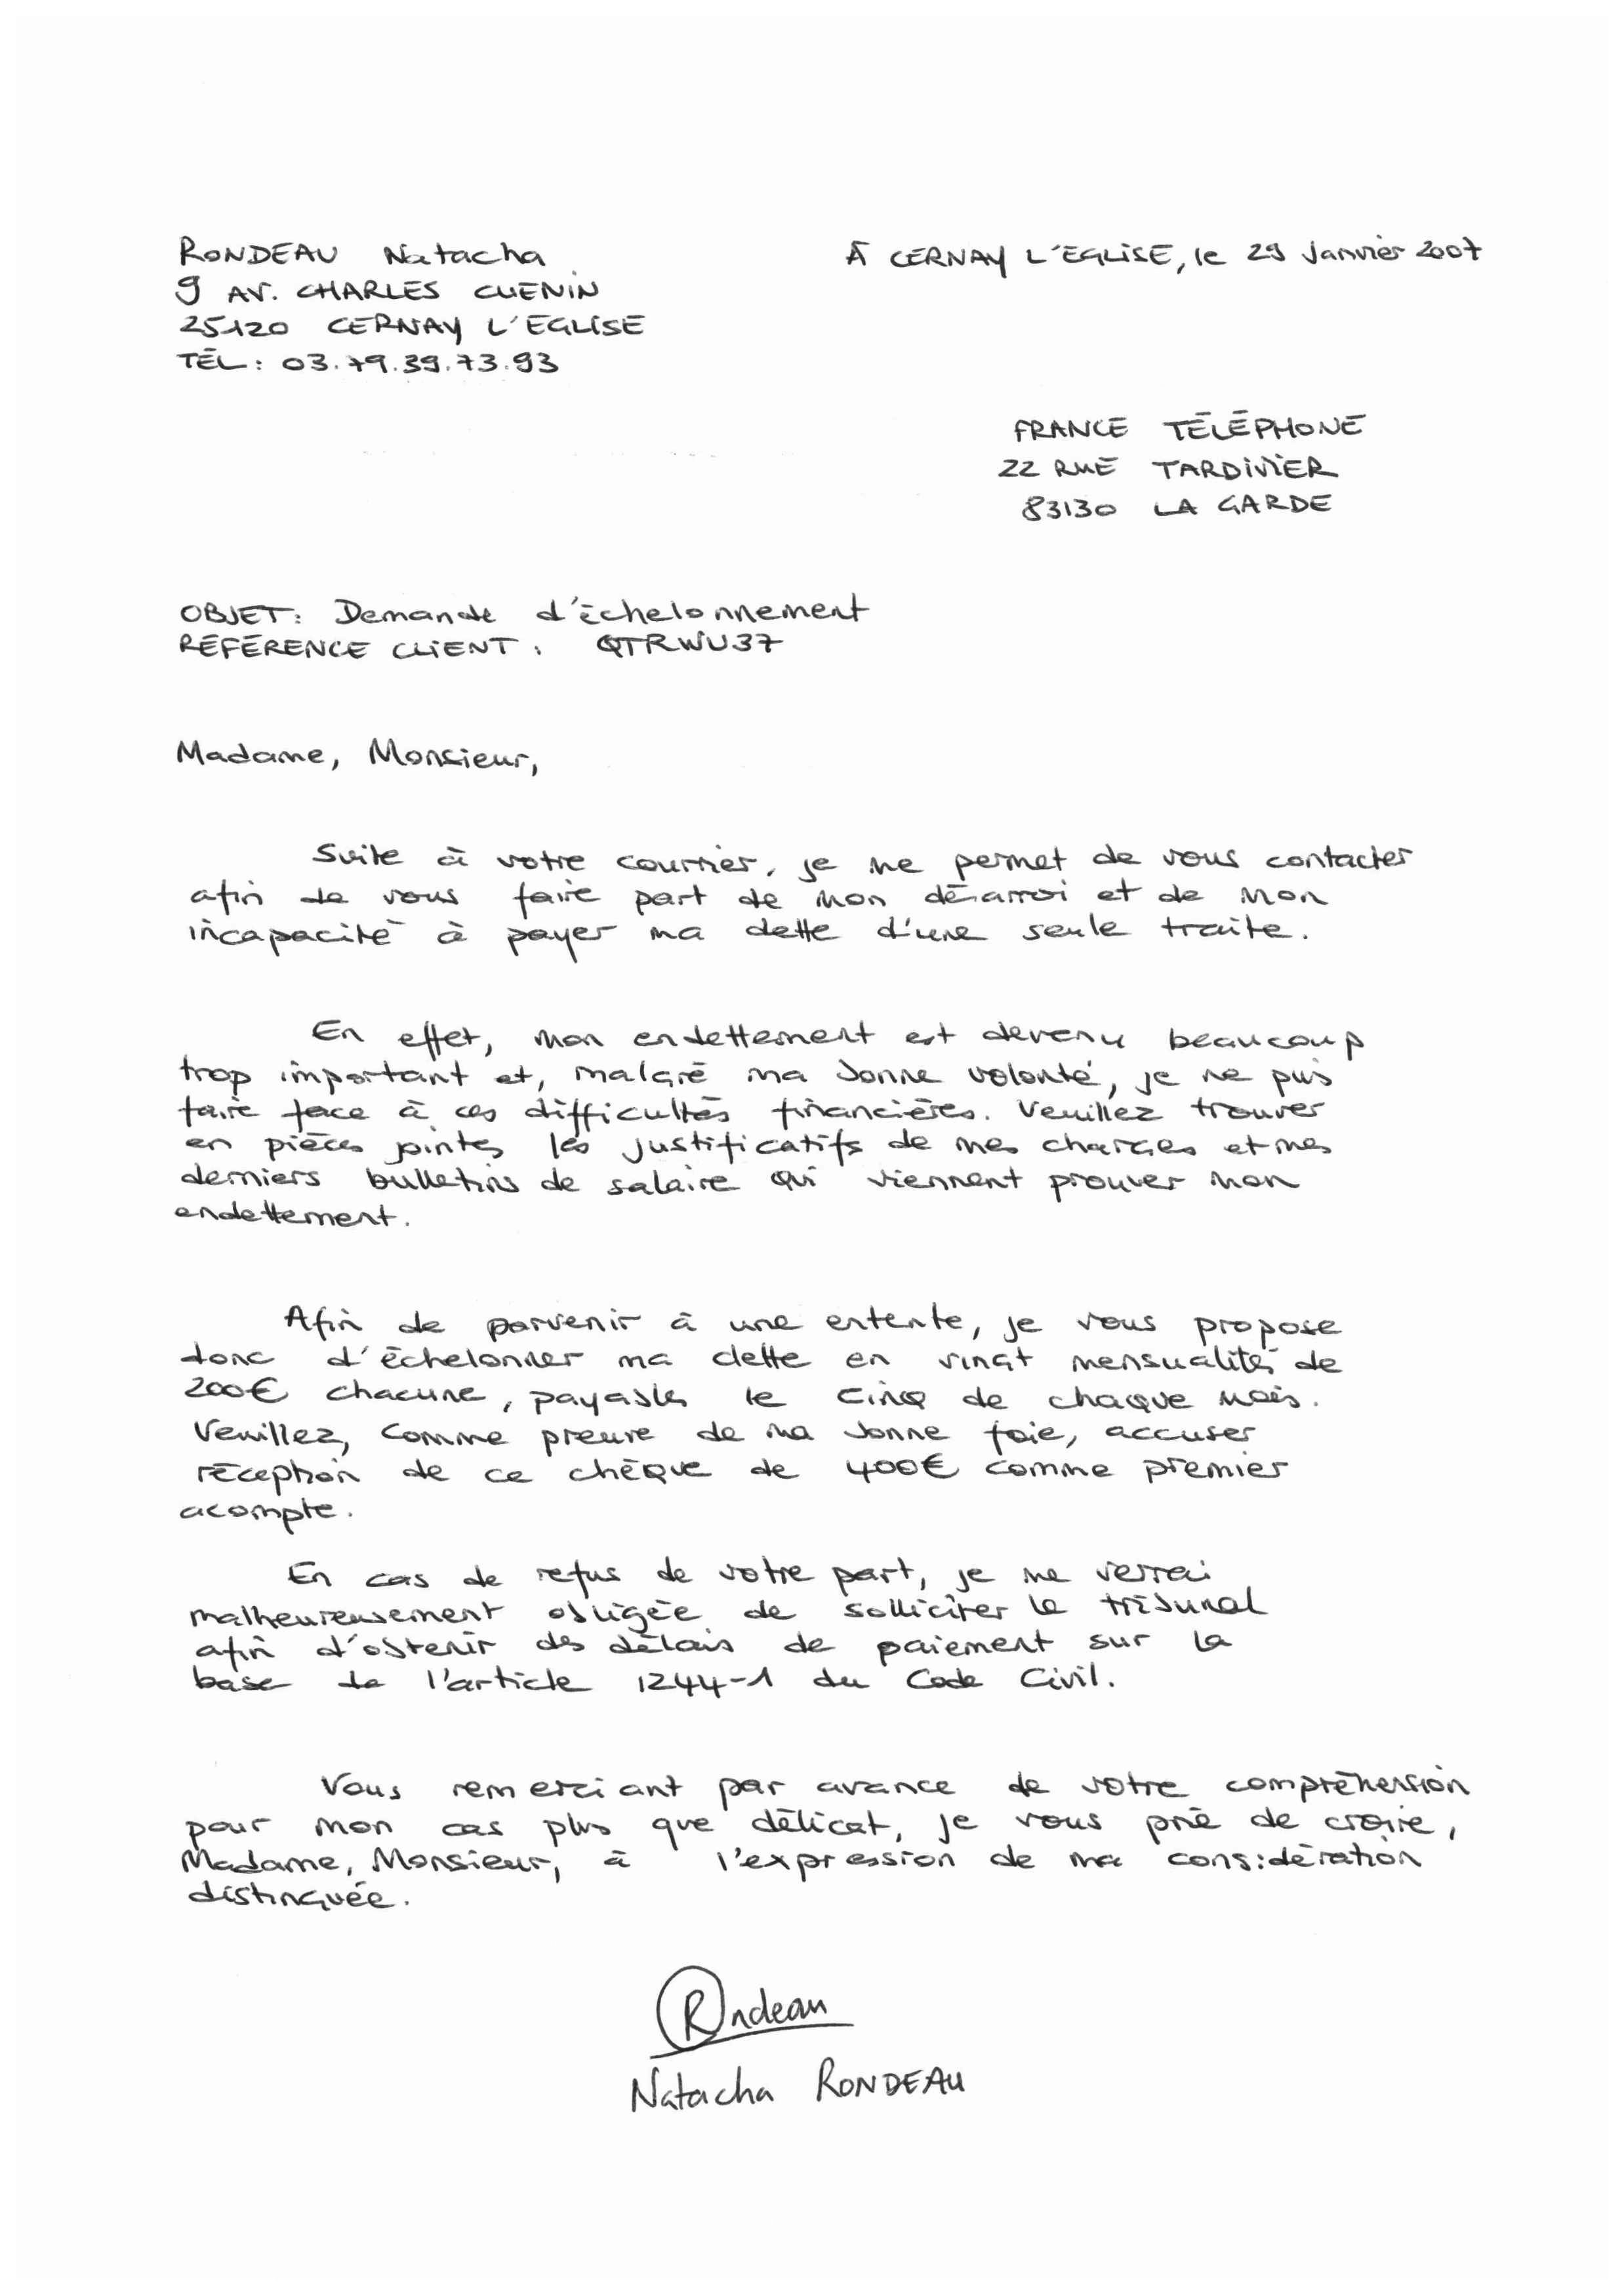 RONDEAU Natacha
À CERNAY L'EGLISE, le 29 janvier 2007
9 AV. CHARLES CUENIN
25120 CERNAY L'EGLISE
TÉL : 03.79.39.73.93
FRANCE TÉLÉPHONE
22 RUE TARDIVIER
83130 LA GARDE
OBJET : Demande d'échelonnement
RÉFÉRENCE CLIENT : QTRWU37
Madame, Monsieur,
Suite à votre courrier, je me permet de vous contacter
afin de vous faire part de mon désarroi et de mon
incapacité à payer ma dette d'une seule traite.
En effet, mon endettement est devenu beaucoup
trop important et, malgré ma bonne volonté, je ne puis
faire face à ces difficultés financières. Veuillez trouver
en pièces jointes les justificatifs de mes charges et mes
derniers bulletins de salaire qui viennent prouver mon
endettement.
Afin de parvenir à une entente, je vous propose
donc d'échelonner ma dette en vingt mensualités de
200€ chacune, payables le cinq de chaque mois.
Veuillez, comme preuve de ma bonne foie, accuser
réception de ce chèque de 400€ comme premier
acompte.
En cas de refus de votre part, je me verrai
malheureusement obligée de solliciter le tribunal
afin d'obtenir des délais de paiement sur la
base de l'article 1244-1 du Code Civil.
Vous remerciant par avance de votre compréhension
pour mon cas plus que délicat, je vous prie de croire,
Madame, Monsieur, à l'expression de ma considération
distinguée.
Rondeau
Natacha RONDEAU